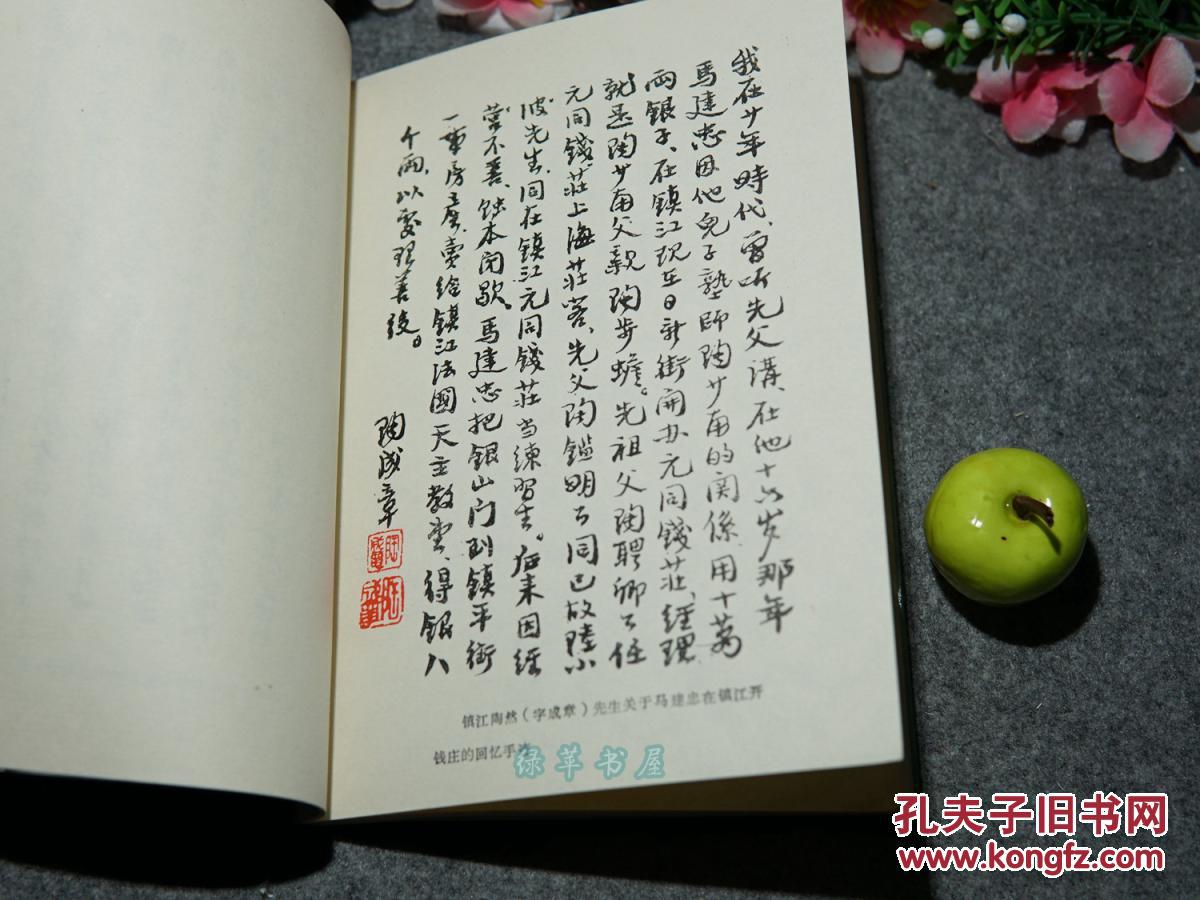 我在廿年時代、曾听先父講、在他十六岁那年
馬建忠因他兒子塾師陶少甫的関係、用十萬
両銀子、在鎮江現在日新街開办元同錢莊、經理
就是陶少甫父親陶步蟾。先祖父陶聘卿公任
元同錢莊上海莊客、先父陶鎰明公同已故陸小
波先生、同在鎮江元同錢莊当練習生。后来因經
营不善、蚀本闭歇。馬建忠把銀山门到鎮平街
一帶房産、賣给鎮江法國天主教堂、得銀八
千両、以處理善後。
陶成章
镇江陶然（字成章）先生关于马建忠在镇江开
钱庄的回忆手迹
绿苹书屋
孔夫子旧书网
www.kongfz.com